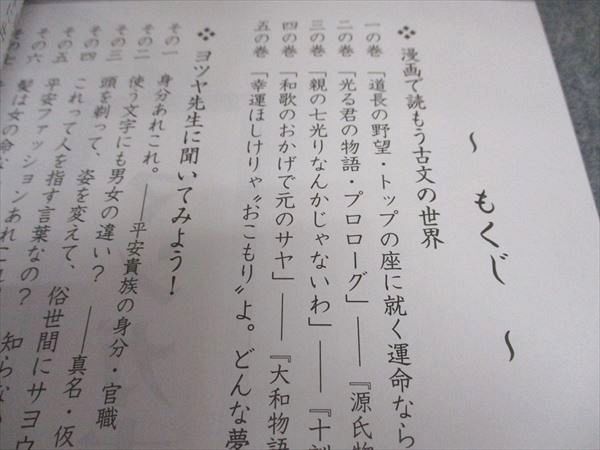 ～ もくじ ～
❖ 漫画で読もう古文の世界
一の巻 「道長の野望・トップの座に就く運命なら
二の巻 「光る君の物語・プロローグ」――『源氏物
三の巻 「親の七光りなんかじゃないわ」――『十訓
四の巻 「和歌のおかげで元のサヤ」――『大和物語
五の巻 「幸運ほしけりゃ〝おこもり〟よ。どんな夢
❖ ヨツヤ先生に聞いてみよう！
その一 身分あれこれ。――平安貴族の身分・官職
その二 使う文字にも男女の違い？――真名・仮
その三 頭を剃って、姿を変えて、俗世間にサヨウ
その四 これって人を指す言葉なの？ 知らな
その五 平安ファッションあれこれ
その六 髪は女の命
その七